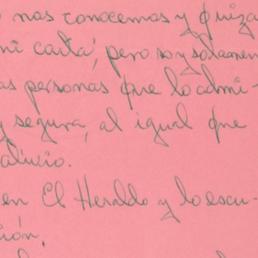 nos conocemos y quizá
mi carta, pero soy solamen
as personas que lo admi-
y segura, al igual que
alivio.
en El Heraldo y lo escu-
ión.